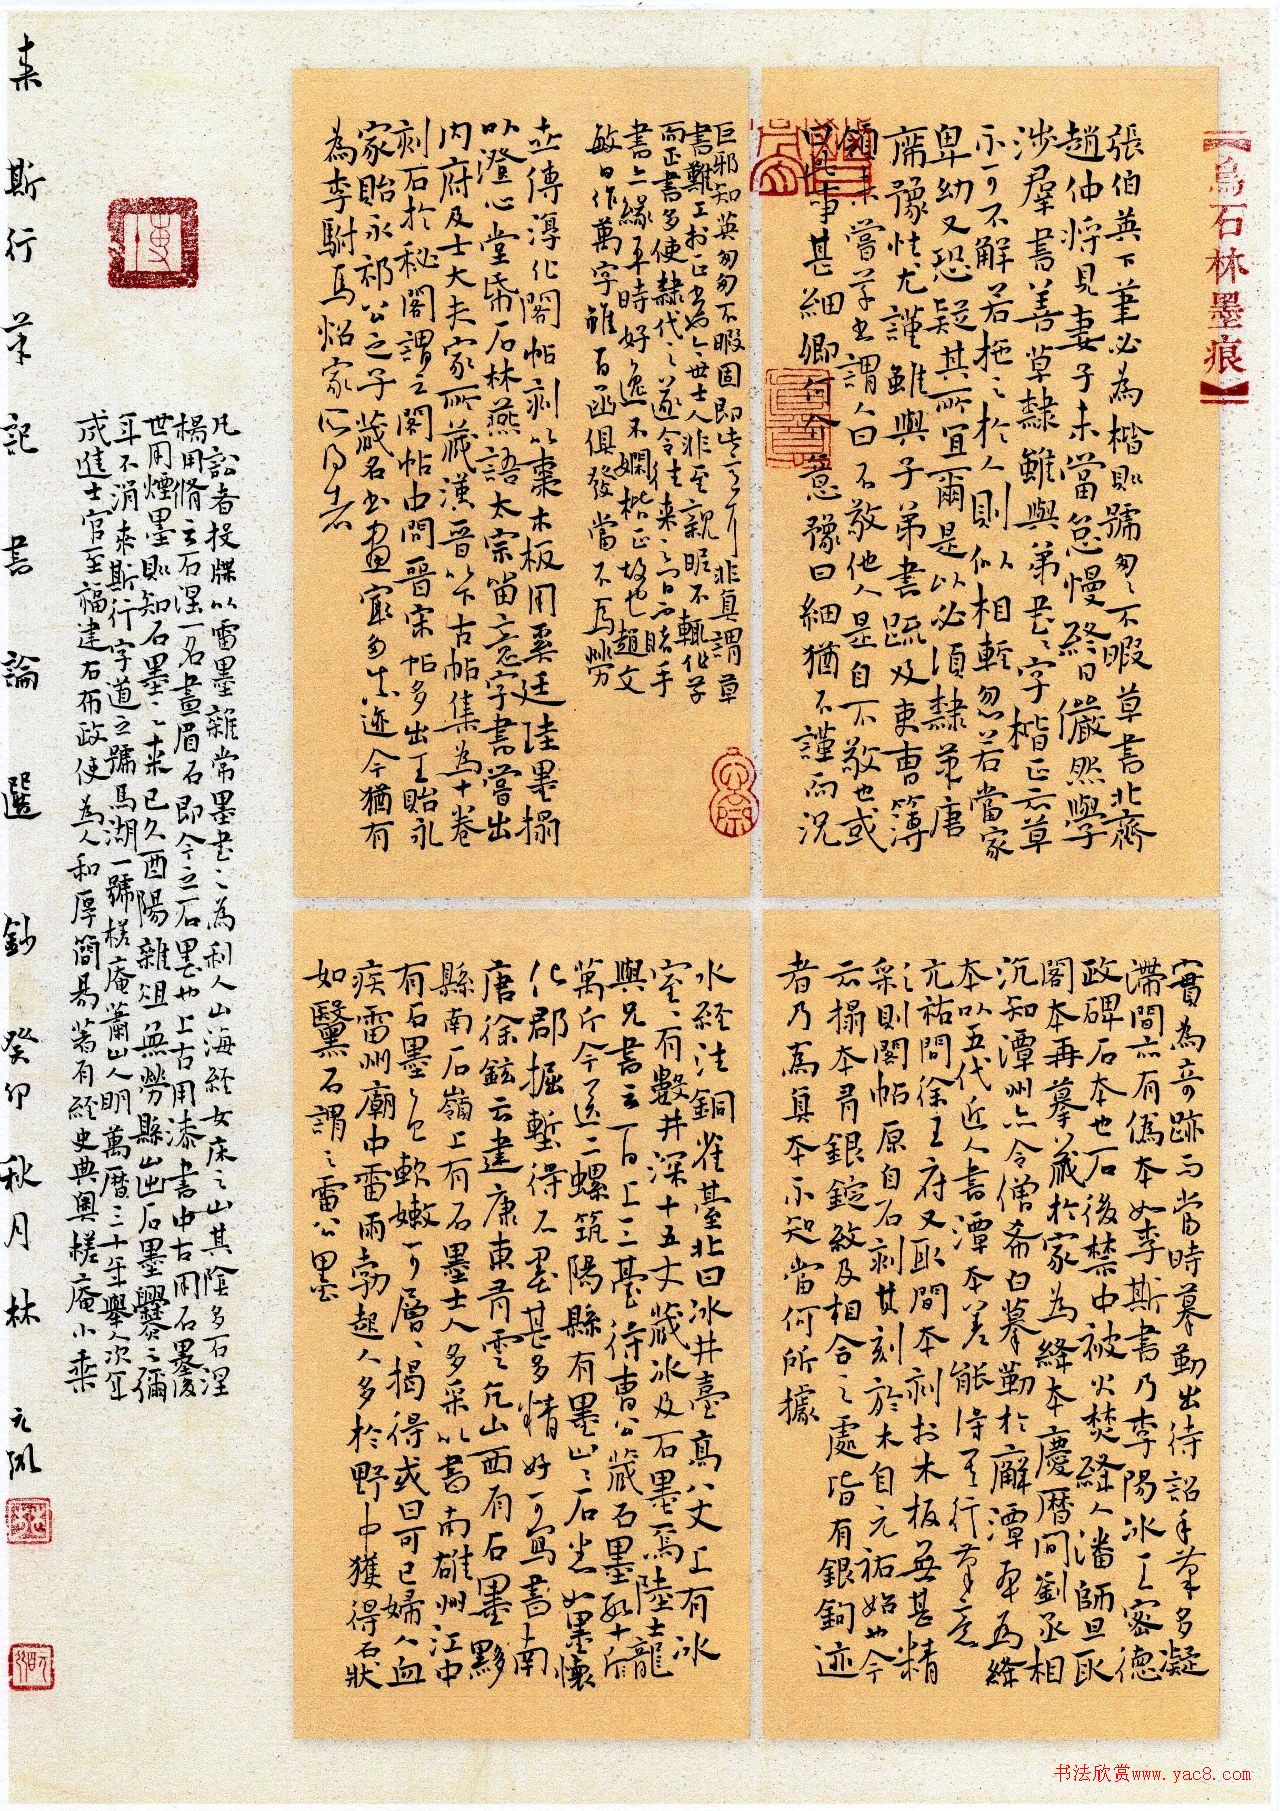 【烏石林墨痕】
張伯英下筆必為楷則號匆匆不暇草書北齋
趙仲將見妻子未嘗怠慢終日儼然學
涉羣書善草隸雖與弟書書字楷正云草
不可不解若施之於人則似相輕忽若當家
卑幼又恐疑其所宜爾是以必須隸筆唐
席豫性尤謹雖與子弟書疏及吏曹簿
領未嘗草書謂人曰不敬他人是自不敬也或
曰此事甚細卿何介意豫曰細猶不謹而況
巨邪知英匆匆不暇固即此言之耳非真謂草
書難工於正書為今世士人非至親昵不輒作草
而正書多使隸代之遂令往來之書不睹手
書亦緣平時好逸不嫻楷正故也趙文
敏日作萬字雖百函俱發當不為勞
世傳淳化閣帖刻以棗木板用奚廷珪墨搨
以澄心堂紙石林燕語太宗留意字書嘗出
內府及士大夫家所藏漢晉以下古帖集為十卷
刻石於秘閣謂之閣帖中間晉宋帖多出王貽永
家貽永祁公之子藏名書畫家多真迹今猶有
為李駙馬炤家所得者
實為奇跡而當時摹勒出待詔手筆多凝
滯間亦有偽本如李斯書乃李陽冰王密德
政碑石本也石後禁中被火焚絳人潘師旦取
閣本再摹藏於家為絳本慶曆間劉丞相
沆知潭州亦令僧希白摹勒於廨潭本為絳
本以五代近人書潭本差能得其行筆意
元祐間徐王府又取閣本刻於木板無甚精
采則閣帖原自石刻其刻於木自元祐始也今
云搨本有銀錠紋及相合之處皆有銀鉤迹
者乃為真本不知當何所據
水经注銅雀臺北曰冰井臺高八丈上有冰
室室有數井深十五丈藏冰及石墨焉陸士龍
與兄書云一百上三臺得曹公藏石墨數十萬
萬斤今送二螺筑陽縣有墨山山石悉如墨懷
化郡掘塹得石墨甚多精好可寫書南
唐徐鉉云建康東有雲穴山西有石墨黟
縣南石嶺上有石墨士人多采以書南雄州江中
有石墨色軟嫩可層層揭得或曰可已婦人血
疾雷州廟中雷雨勃起人多於野中獲得石狀
如黳石謂之雷公墨
凡訟者投牒以雷墨雜常墨書之為利人山海經女床之山其陰多石涅
楊用脩云石涅一名畫眉石即今之石墨也上古用漆書中古用石墨後
世用煙墨則知石墨之來已久酉陽雜俎無勞縣山出石墨爨之彌
耳不消來斯行字道之號馬湖一號槎庵蕭山人明萬曆三十年舉人次年
成進士官至福建右布政使為人和厚簡易著有經史典奧槎庵小乘
來斯行筆記書論選鈔癸卯秋月林
书法欣赏www.yac8.com